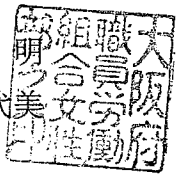 大阪府
職員労働
組合女性
部明夕美印